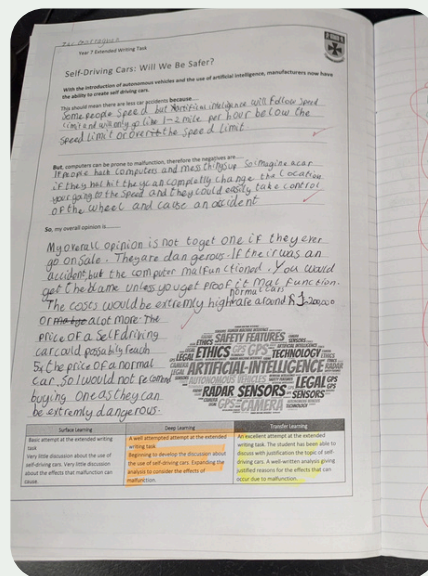 Year 7 Extended Writing Task
Self-Driving Cars: Will We Be Safer?
With the introduction of autonomous vehicles and the use of artificial intelligence, manufacturers now have
the ability to create self driving cars.
This should mean there are less car accidents because....
Some people speed but artificial inteligence will follow speed
limit and will only go like 1-2 mile per hour below the
speed limit or over the speed limit
But, computers can be prone to malfunction, therefore the negatives are.....
If people hack computers and mess things up so imagine a car
if they had hit the car completly change the location
your going to the speed and they could easily take control
of the wheel and cause an accident
So, my overall opinion is.......
My overall opinion is not to get one if they ever
go on sale. They are dangerous. If their was an
accident, but the computer malfunctioned. You would
get the blame unless you get proof it mal function.
normal cars
The costs would be extremly high are around
or a lot more. The
price of a self driving
car could possably reach
5x the price of a normal
car. So I would not
buying one as they can
be extremly dangerous.
SAFETY FEATURES
ETHICS GPS TECHNOLOGY
LEGAL
ARTIFICIAL-INTELLIGENCE
AUTONOMOUS VEHICLES
LEGAL
RADAR SENSORS
SENSORS
GPS CAMERA
Surface Learning Deep Learning Transfer Learning
Basic attempt at the extended writing
task
Very little discussion about the use of
self-driving cars. Very little discussion
about the effects that malfunction can
cause.
A well attempted attempt at the extended
writing task.
Beginning to develop the discussion about
the use of self-driving cars. Expanding the
analysis to consider the effects of
malfunction.
An excellent attempt at the extended
writing task. The student has been able to
discuss with justification the topic of self-
driving cars. A well-written analysis giving
justified reasons for the effects that can
occur due to malfunction.